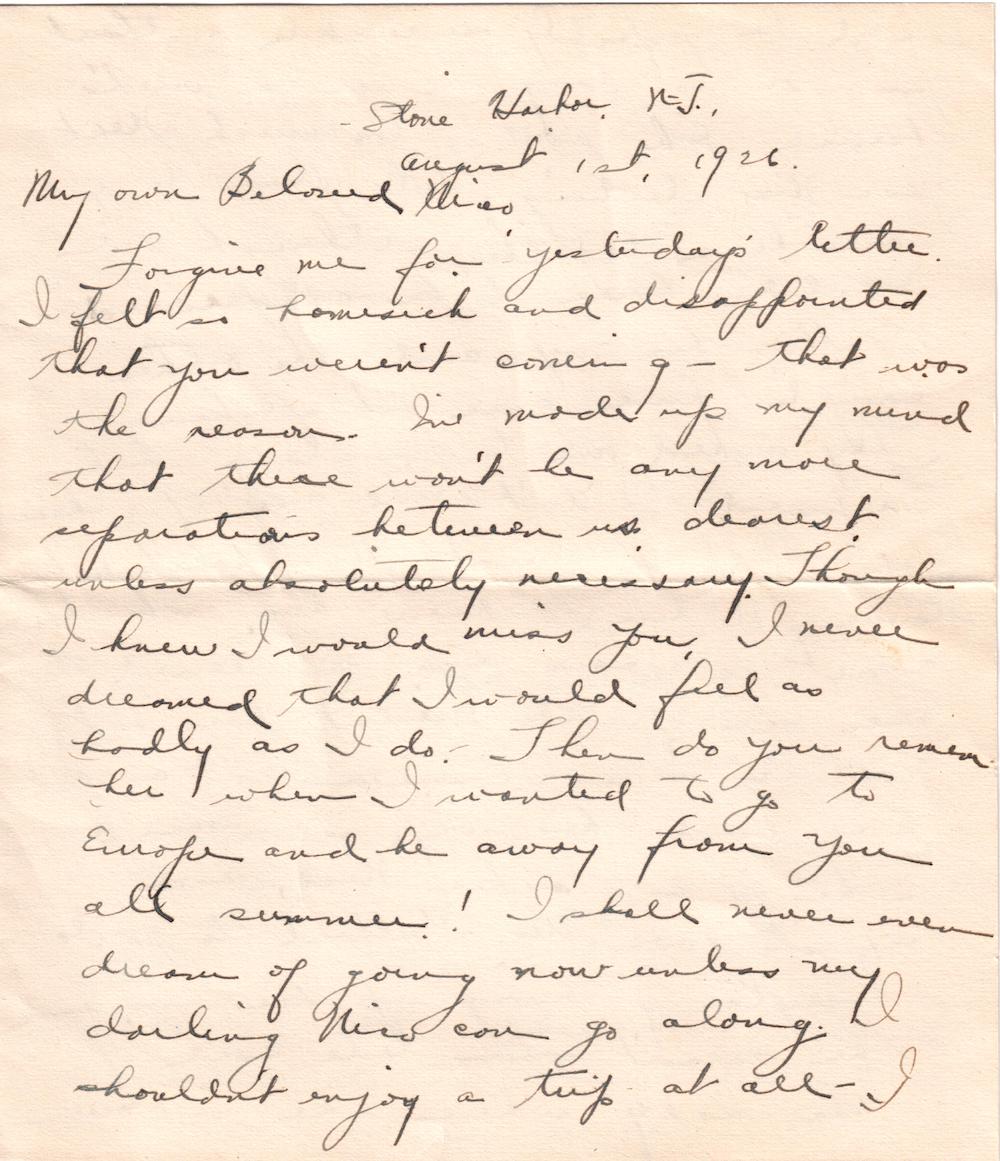 Stone Harbor, N-J.,
August 1st, 1926.
My own Beloved Niso
Forgive me for yesterday's letter.
I felt so homesick and disappointed
that you weren't coming – that was
the reason. I've made up my mind
that there won't be any more
separations between us dearest
unless absolutely necessary. Though
I knew I would miss you, I never
dreamed that I would feel as
badly as I do. Then do you remem
ber when I wanted to go to
Europe and be away from you
all summer! I shall never even
dream of going now unless my
darling Niso can go along. I
shouldn't enjoy a trip at all – I